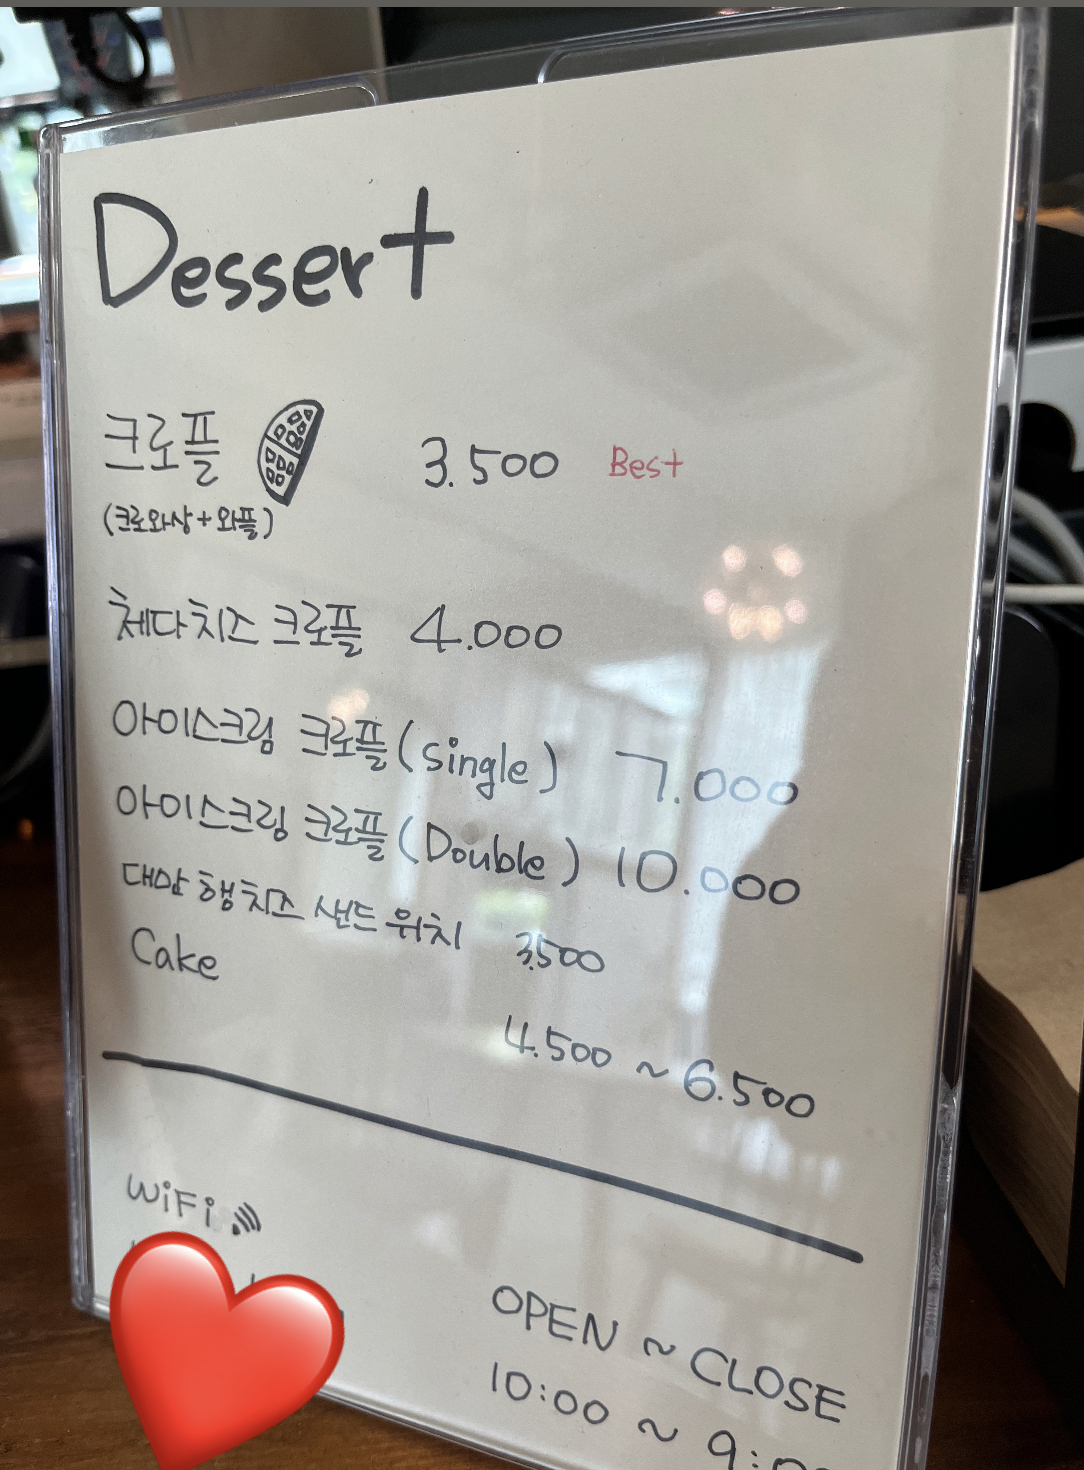 Dessert
크로플 3.500 Best
(크로와상+와플)
체다치즈 크로플 4.000
아이스크림 크로플(single) 7.000
아이스크림 크로플(Double) 10.000
대만 햄치즈 샌드위치 3.500
Cake
4.500 ~ 6.500
WiFi
OPEN ~ CLOSE
10:00 ~